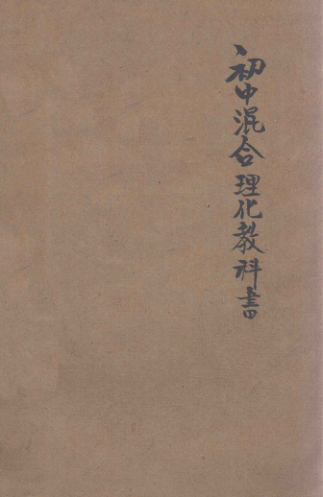 初中混合理化教科書